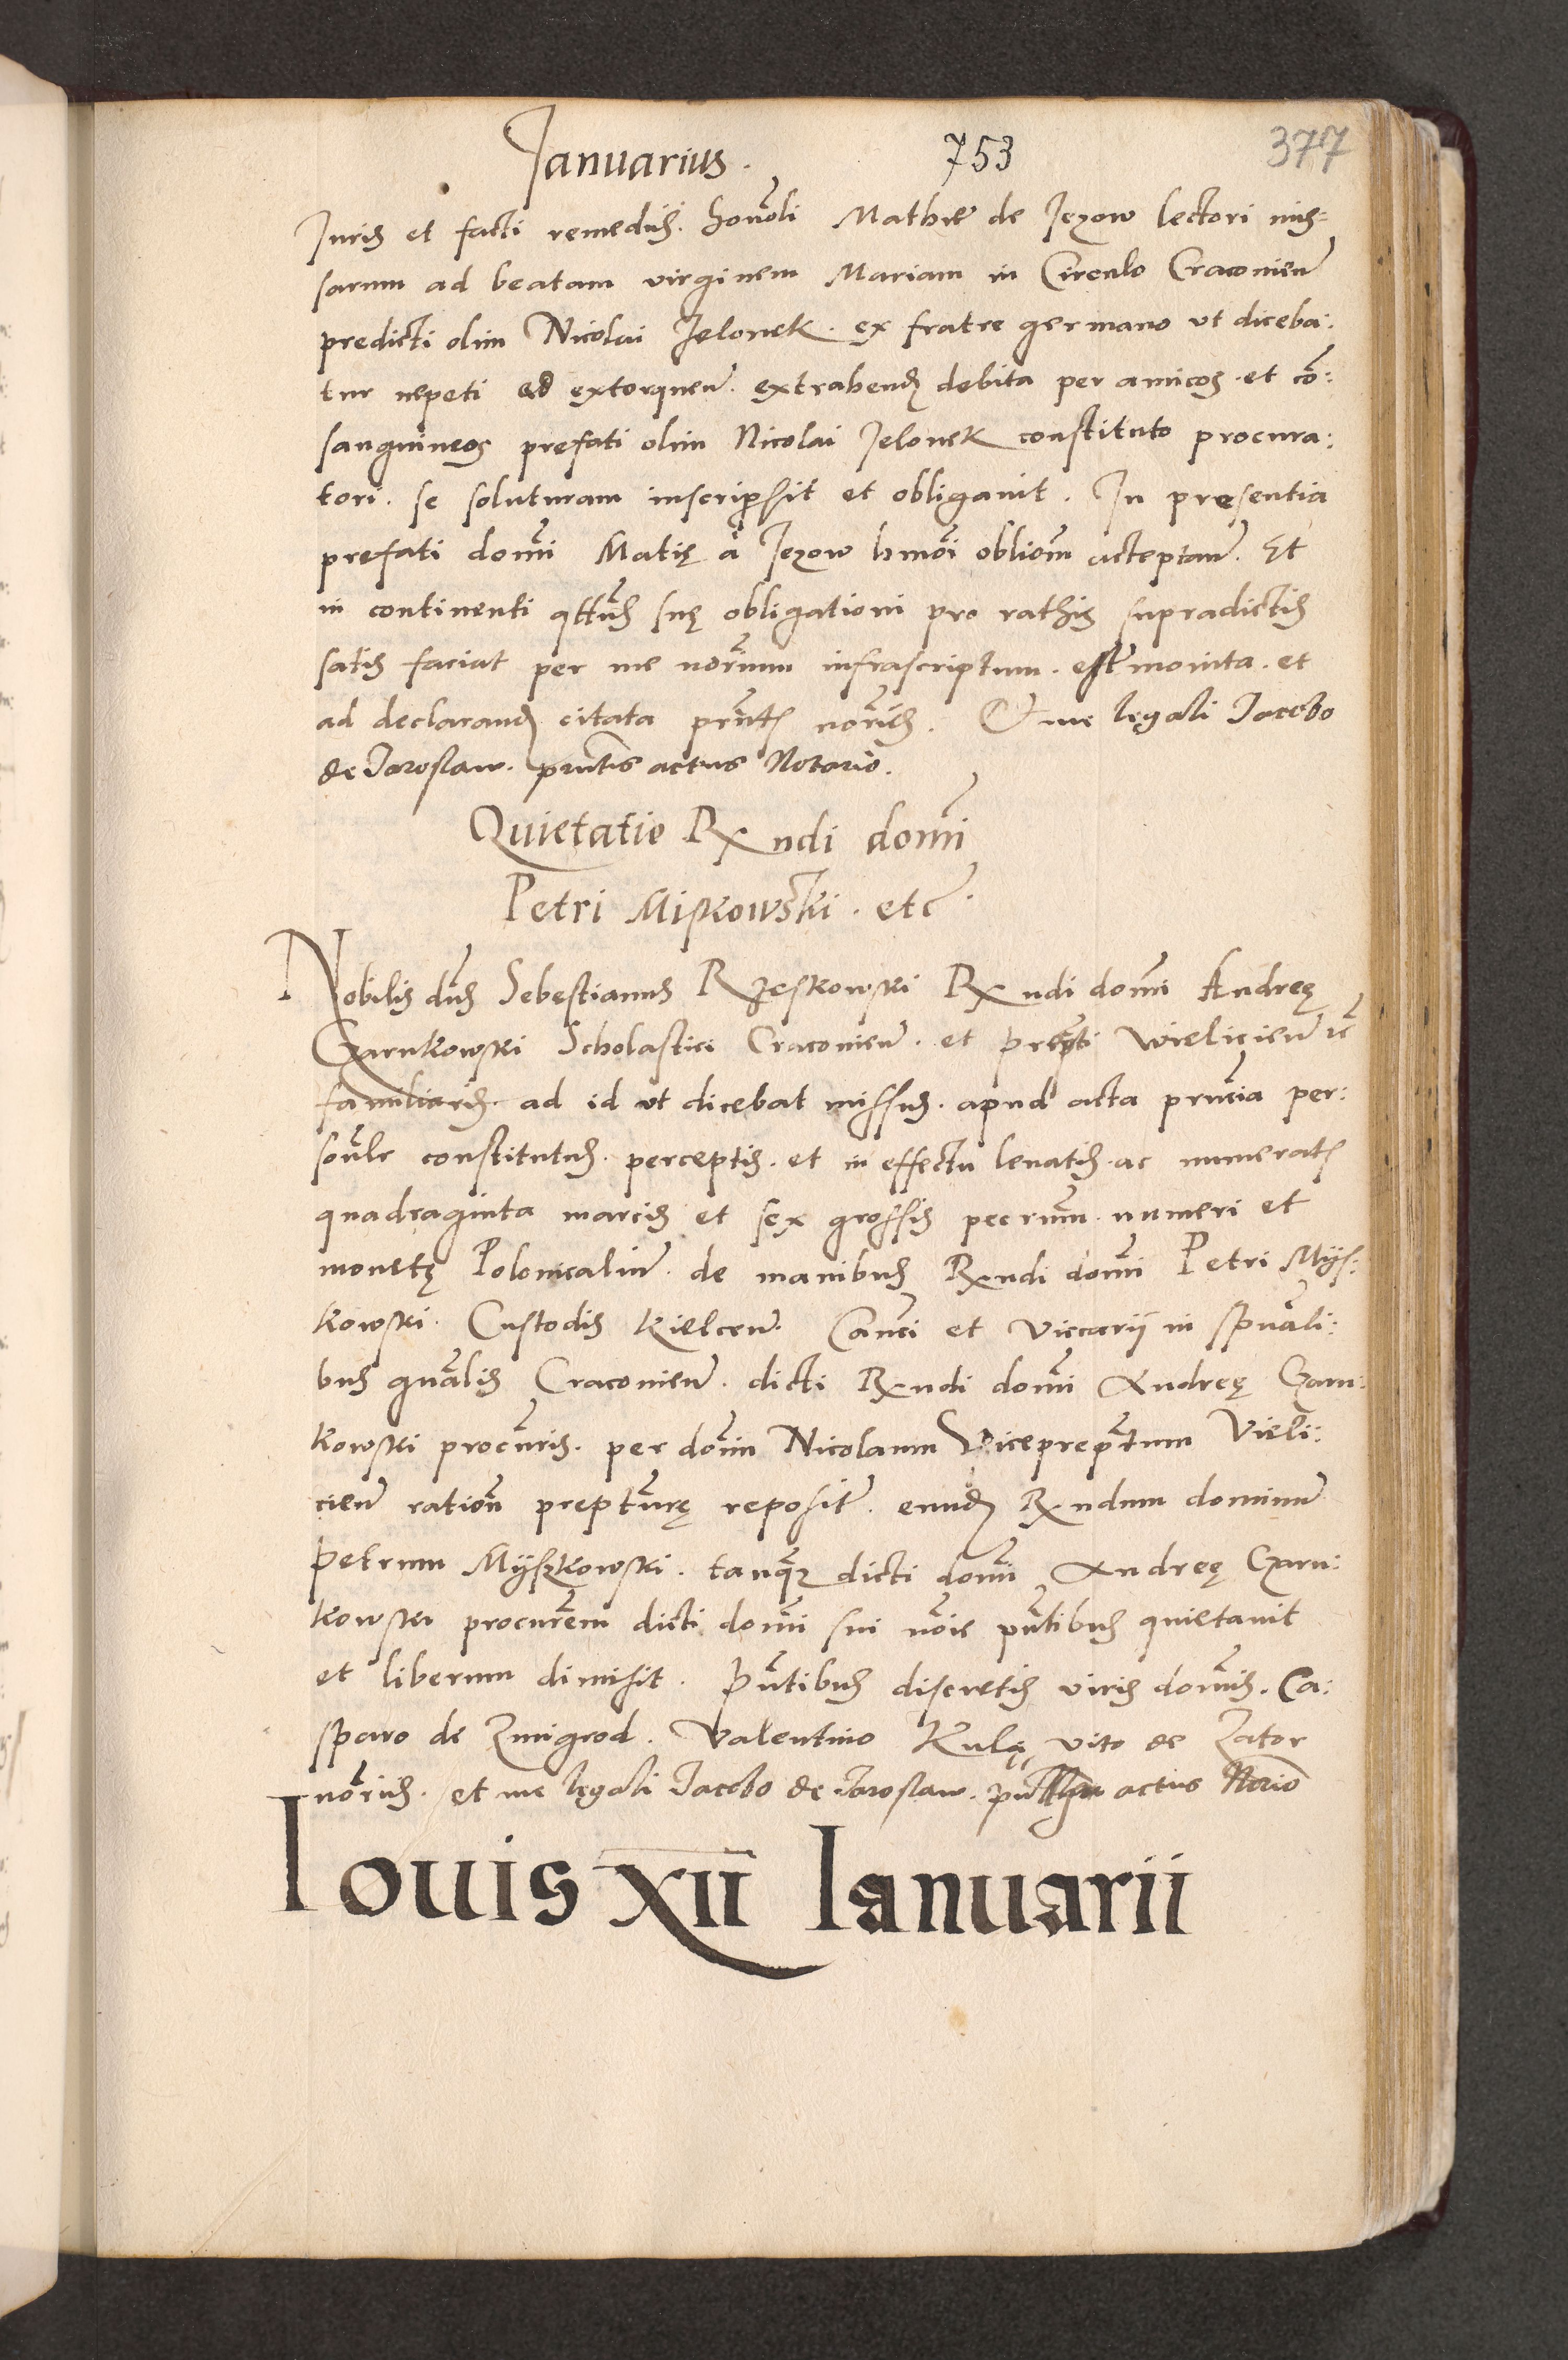 Ianuarius. 753 377
Iuris et facti remediis. honoli Mathie de Jezow lectori mis:
sarum ad beatam virginem Mariam in Circulo Cracouien
predicti olim Nicolai Jelonek. ex fratre germano ut diceba:
tur nepoti ad extorquen. extrahend debita per amicos. et con:
sanguineos prefati olim Nicolai Jelonek constituto procura:
tori. se soluturam inscripsit et obligauit. In presentia
prefati domi Matię à Jezow hmoi obliom acceptan. Et
in continenti qttus suę obligationi pro rathis supradictis
satis faciat per me norium infrascriptum. est monita. et
ad declarand citata prntt noriis. Et me legali Jacobo
de Jaroslaw. pntis actus Notario.
Quietatio Rx ndi domi
Petri Miskowski. etc.
Nobilis dns Sebestianus Rzeskowski Rx ndi domi Andreę
Czarnkowski Scholastici Cracouien. et prepti Wielicien etc
familiaris. ad id ut dicebat missus. apud acta prncia per:
sonlr constitutus. perceptis. et in effectu leuatis. ac numerat
quadraginta marcis et sex grossis pecrum. numeri et
monetę Polonicalium. de manibus Rxndi domi Petri Mÿs:
kowski. Custodis Kielcen. Canci et Viccarii in spuali:
bus gnalis Cracouien. dicti Rxndi domi Andreę Czarn:
kowski procuris. per domin Nicolaum Vicepreptum Vieli:
cien ration prepturę reposit. eund Rx ndum dominum
Petrum Mÿszkowski. tanqz dicti domi Andreę Czarn:
kowski procurem dicti domi sui noie pntibus quietauit
et liberum dimisit. Pntibus discretis viris domis. Ca:
sparo de Zmigrod. Valentino Kulę, vito de Zator
noriis. et me legali Jacobo de Jaroslaw. actus Norio
Iouis xii Ianuarii